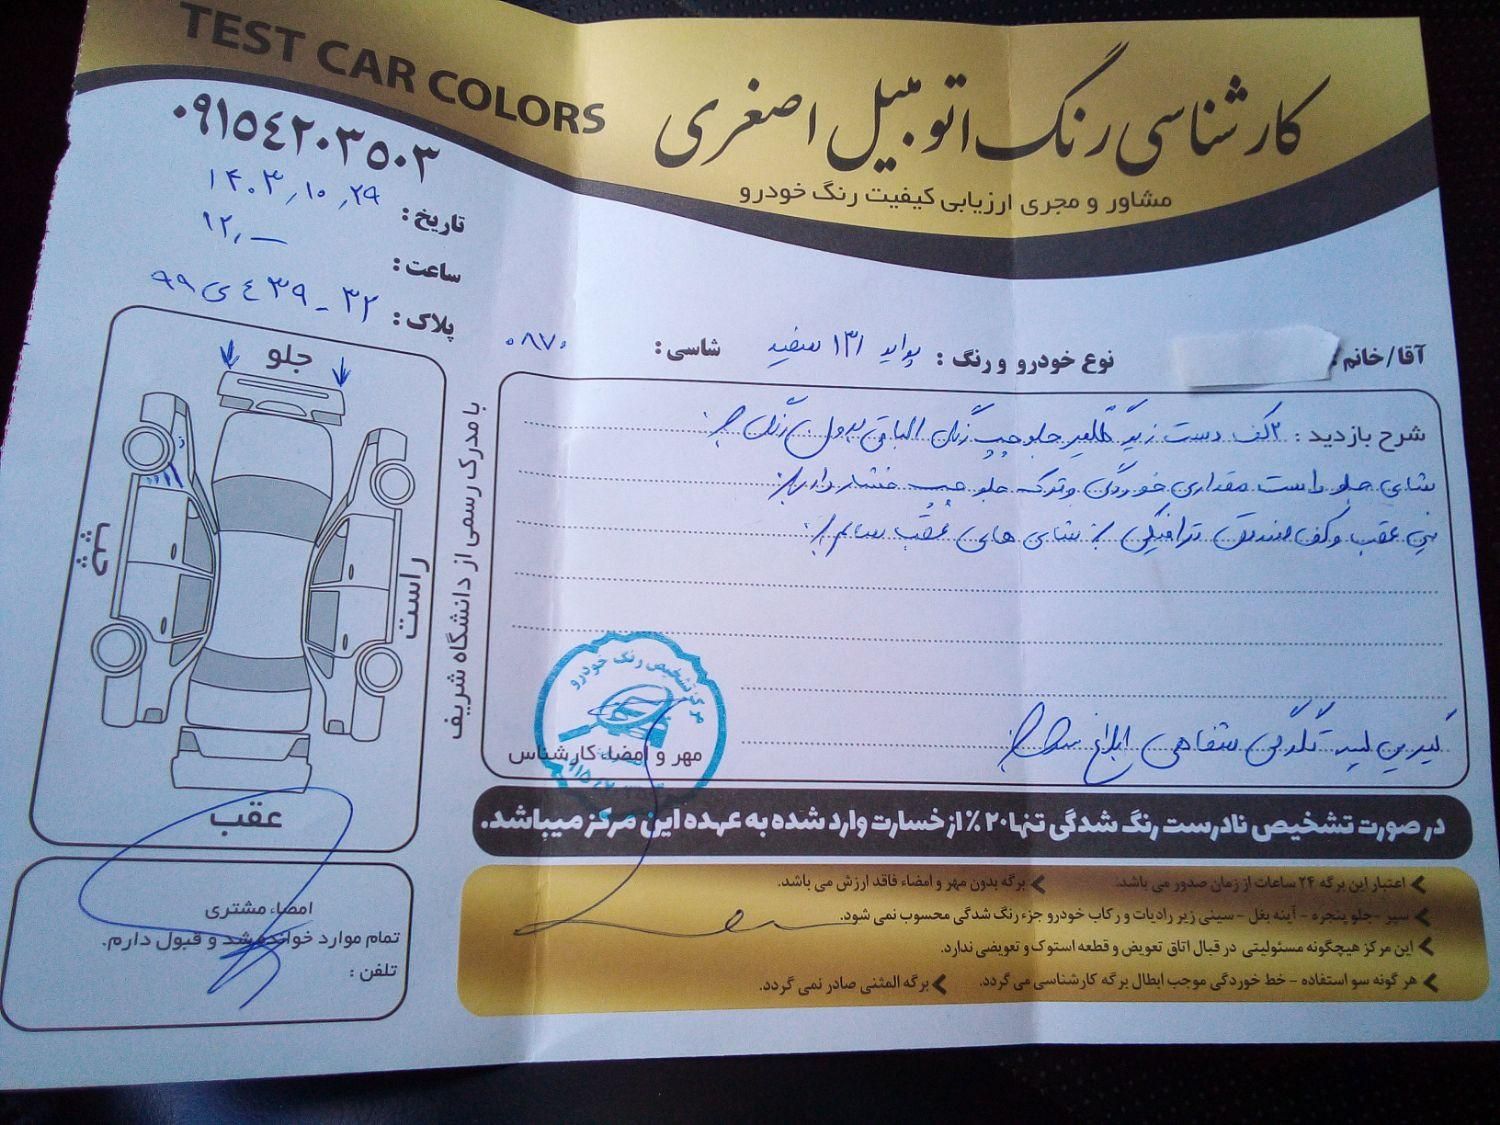 TEST CAR COLORS
کارشناسی رنگ اتومبیل اصغری
مشاور و مجری ارزیابی کیفیت رنگ خودرو
۰۹۱۵۴۲۰۳۵۰۳
تاریخ: ۱۴۰۳٫۱۰٫۲۹
ساعت: ۱۲٫ـ
پلاک: ۳۲ ـ ۴۳۹ ی ۹۹
آقا/خانم:
نوع خودرو و رنگ: پراید ۱۳۱ سفید
شاسی: ۰۸۷۰
شرح بازدید: ۲ کف دست زیر گلگیر جلو چپ رنگ الباقی بدون رنگ
شاسی جلو راست مقداری خوردگی و ترکه جلو چپ فشار دارد
سینی عقب و کف صندوق ترافیکی شاسی های عقب سالم
شفاهی ابلاغ شد
جلو
چپ
راست
عقب
با مدرک رسمی از دانشگاه شریف
مرکز تشخیص رنگ خودرو
مهر و امضاء کارشناس
در صورت تشخیص نادرست رنگ شدگی تنها ۲۰ ٪ از خسارت وارد شده به عهده این مرکز میباشد.
اعتبار این برگه ۲۴ ساعات از زمان صدور می باشد.
برگه بدون مهر و امضاء فاقد ارزش می باشد.
سپر - جلو پنجره - آینه بغل - سینی زیر رادیات و رکاب خودرو جزء رنگ شدگی محسوب نمی شود.
این مرکز هیچگونه مسئولیتی در قبال اتاق تعویض و قطعه استوک و تعویضی ندارد.
هر گونه سو استفاده - خط خوردگی موجب ابطال برگه کارشناسی می گردد.
برگه المثنی صادر نمی گردد.
امضاء مشتری
تمام موارد خوانده شد و قبول دارم.
تلفن: